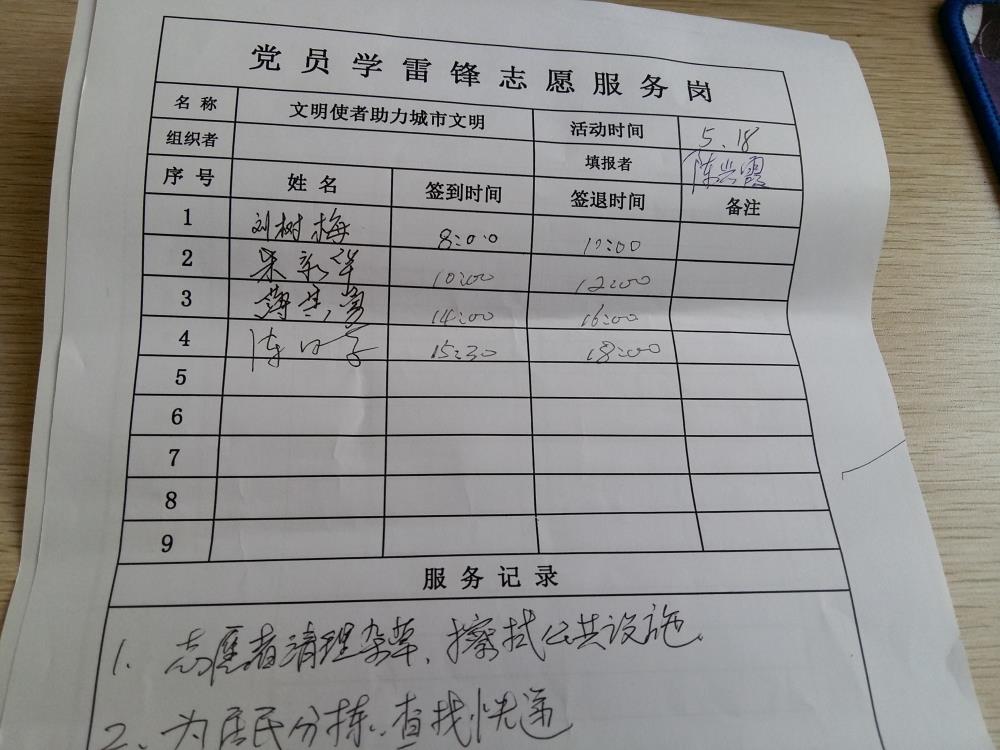 党员学雷锋志愿服务岗
名称 文明使者助力城市文明 活动时间 5.18
组织者 填报者 陈兴霞
序号 姓名 签到时间 签退时间 备注
1 刘树梅 8:00 10:00
2 朱新华 10:00 12:00
3 14:00 16:00
4 15:30 18:00
5
6
7
8
9
服务记录
1. 志愿者清理杂草、擦拭公共设施
2、为居民分拣、查找快递